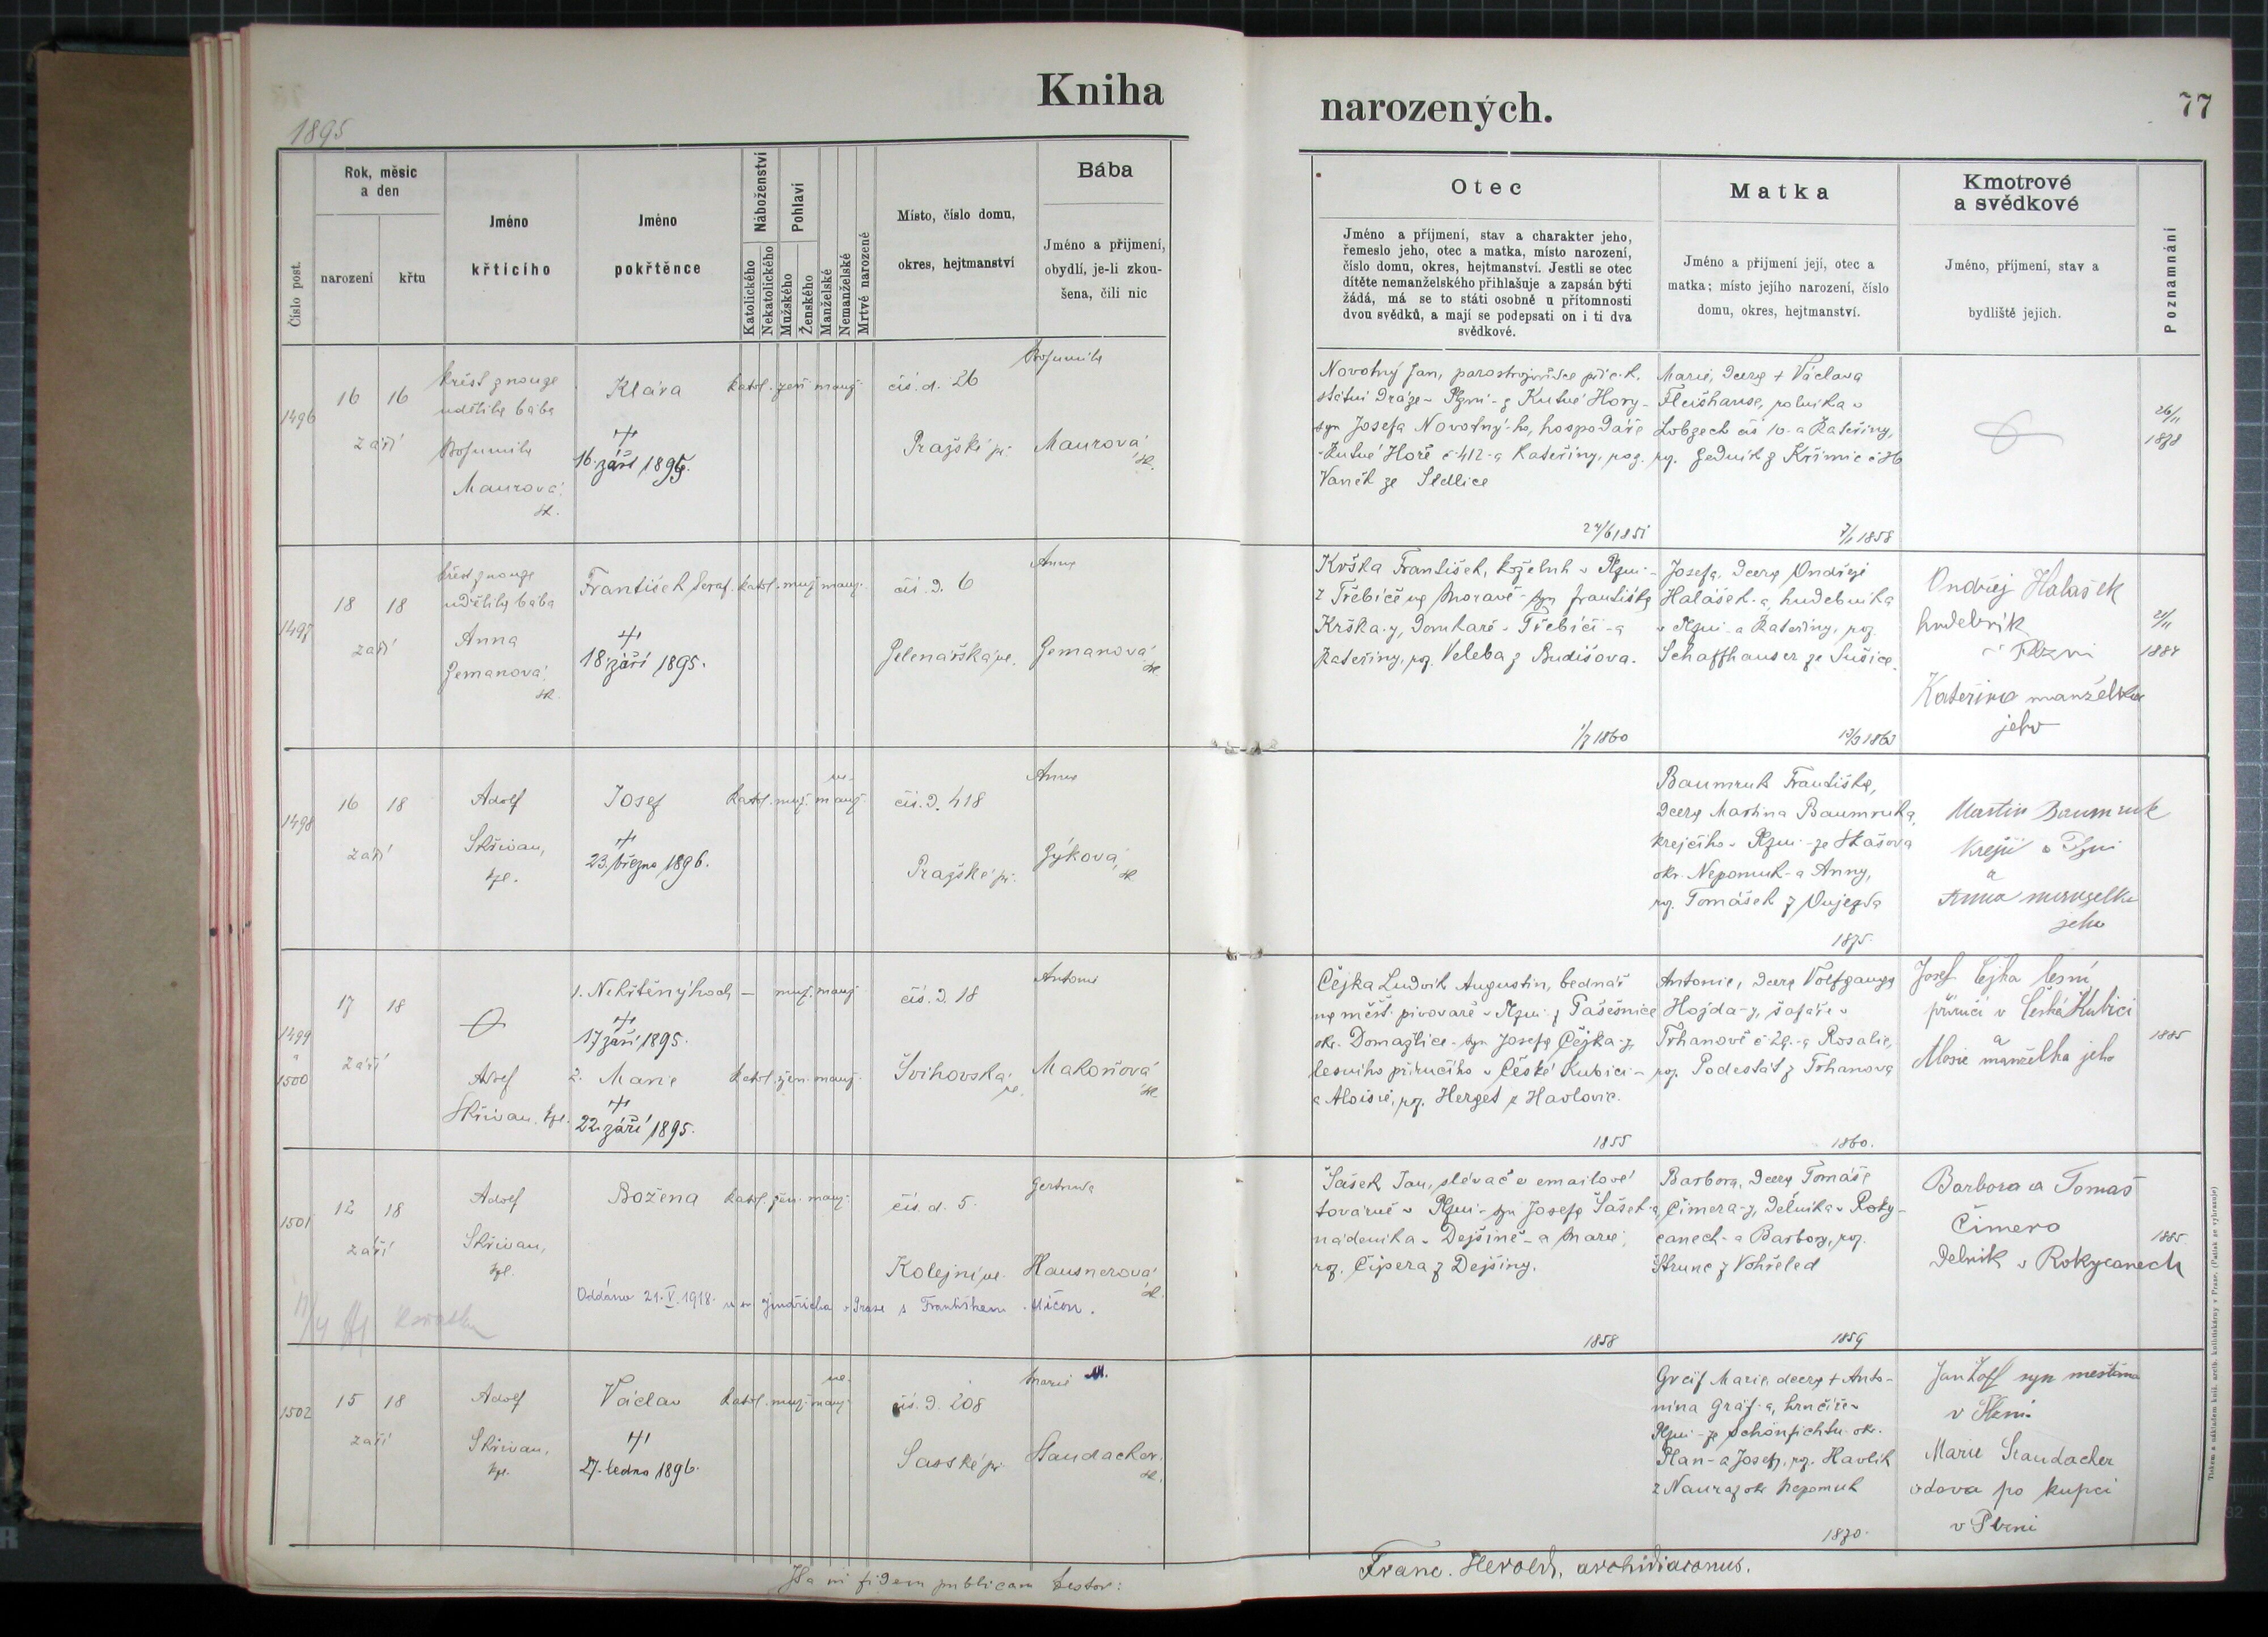 Kniha
narozených.
77
1895
Číslo post.
Rok, měsíc
a den
narození
křtu
Jméno
křticího
Jméno
pokřtěnce
Náboženství
Katolického
Nekatolického
Pohlaví
Mužského
Ženského
Manželské
Nemanželské
Mrtvě narozené
Místo, číslo domu,
okres, hejtmanství
Bába
Jméno a přijmení,
obydlí, je-li zkou-
šena, čili nic
Otec
Jméno a příjmení, stav a charakter jeho,
řemeslo jeho, otec a matka, místo narození,
číslo domu, okres, hejtmanství. Jestli se otec
dítěte nemanželského přihlašuje a zapsán býti
žádá, má se to státi osobně u přítomnosti
dvou svědků, a mají se podepsati on i ti dva
svědkové.
Matka
Jméno a přijmení její, otec a
matka; místo jejího narození, číslo
domu, okres, hejtmanství.
Kmotrové
a svědkové
Jméno, příjmení, stav a
bydliště jejich.
Poznamnání
1496
16 16
září
křest z nouze
udělila bába
Bohumila
Maurová
zk.
Klára
16. září 1895.
katol. žen. manž.
čís. d. 26
Pražské př.
Bohumila
Maurová
zk.
Novotný Jan, parostrojvůdce při c. k.
státní dráze v Plzni z Kutné Hory
syn Josefa Novotný-ho, hospodáře
Kutné Hoře č 412 a Kateřiny, roz.
Vaněk ze Sedlice
24/6 1851
Marie, dcera + Václava
Fleišhanse, rolníka v
Lobzech čís 10 a Kateřiny,
roz. Jedník z Křimic č 26
7/1 1858
26/11
1878
1497
18 18
září
křest z nouze
udělila bába
Anna
Jemanová
zk.
František Seraf.
18. září 1895.
katol. muž. manž.
čís. d. 6
Jelenářská ul.
Anna
Jemanová
zk.
Krška František, koželuh v Plzni
z Třebíče na Moravě syn Františka
Kršk-y, domkaře v Třebíči a
Kateřiny, roz. Veleba z Budišova.
1/7 1860
Josefa, dcera Ondřeje
Halášek-a, hudebníka
v Plzni a Kateřiny, roz.
Schaffhauser ze Sušice.
Ondřej Halašek
hudebník
v Plzni
Kateřina manželka
jeho
21/11
1884
1498
16 18
září
Adolf
Skřivan,
kpl.
Josef
23. března 1896.
katol. muž. ne-manž.
čís. d. 418
Pražské př.
Anna
Jýková
zk
Baumruk Františka,
dcera Martina Baumruka,
krejčího v Plzni ze Skašova
okr. Nepomuk a Anny,
roz. Tomášek z Oujezda
1875.
Martin Baumruk
krejčí v Plzni
a
Anna manželka
jeho
1499
a
1500
17 18
září
Adolf
Skřivan, kpl.
1. Nekřtěný hoch
17 září 1895.
2. Marie
22. září 1895.
— muž. manž.
katol. žen. manž.
čís. d. 18
Švihovská ul.
Antonie
Makoňová
zk.
Čejka Ludvík Augustin, bednář
na měšť. pivovaře v Plzni z Pašešnice
okr. Domažlice syn Josefa Čejka-y,
lesního příručího v České Kubici
a Aloisie, roz. Herget z Havlovic.
1855
Antonie, dcera Volfganga
Hojda-y, šafáře v
Trhanově č 29 a Rosalie,
roz. Podestát z Trhanova
1860.
Josef Čejka lesní
příručí v České Kubici
a
Aloisie manželka jeho
1885
1501
12 18
září
Adolf
Skřivan,
kpl.
Božena
katol. žen. manž.
čís. d. 5.
Kolejní ul.
Gertruda
Hausnerová
zk.
Oddána 21.V.1918. u sv. Jindřicha v Praze s Františkem Míčou.
Šašek Jan, slévač v emailové
továrně v Plzni syn Josefa Šašek-a,
nádeníka v Dejšině a Marie,
roz. Čipera z Dejšiny.
1858
Barbora, dcera Tomáše
Čimera-y, dělníka v Roky-
canech a Barbory, roz.
Strunc z Vohřeled
1859
Barbora a Tomaš
Čimera
Delnik v Rokycanech
1885
1502
15 18
září
Adolf
Skřivan,
kpl.
Václav
27. ledna 1896.
katol. muž. ne-manž.
čís. d. 208
Saské př.
Marie M.
Staudacher.
zk.
Greif Marie, dcera + Anto-
nína Gráf-a, hrnčíře v
Plzni ze Schönfichtu okr.
Plan a Josefy, roz. Havlík
z Nauraz okr Nepomuk
1870.
syn meštana
v Plzni
Marie Staudacher
vdova po kupci
v Plzni
Ita in fidem publicam testor:
Franc. Herold, archidiaconus.